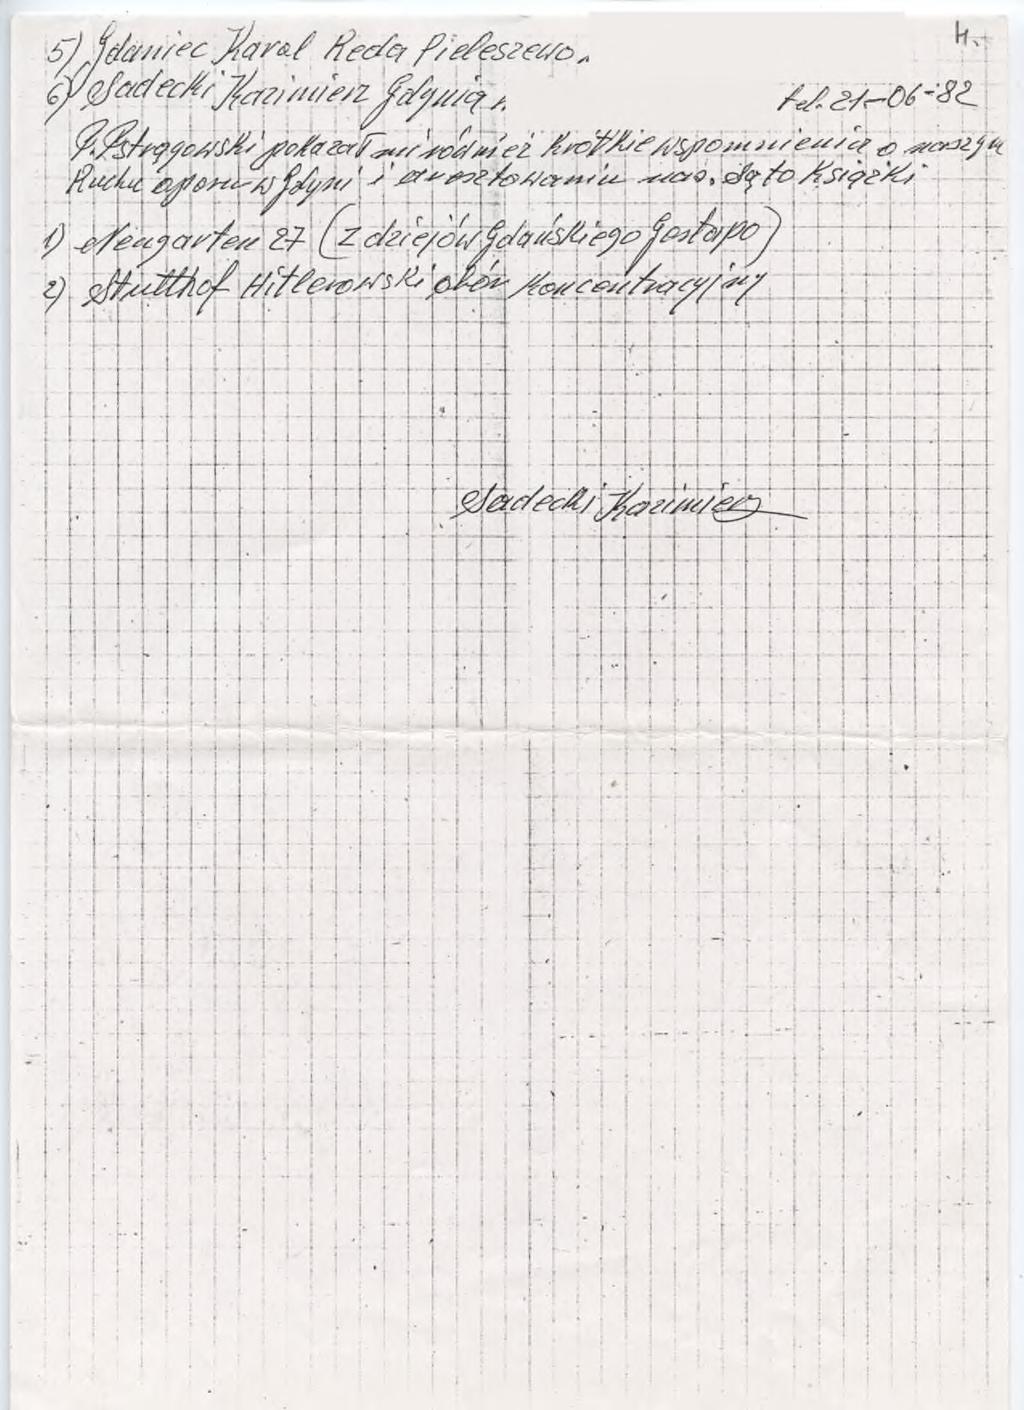 4.
5) Gdaniec Karol Reda Pieleszewo.
6) Sadecki Kazimierz Gdynia. tel. 21-06-82
P. Pstrągowski pokazał mi również krótkie wspomnienia o naszym
Ruchu oporu w Gdyni i aresztowaniu nas. Są to Książki
1) Neugarten 27 (Z dziejów Gdańskiego Gestapo)
2) Stutthof Hitlerowski obóz koncentracyjny
Sadecki Kazimierz